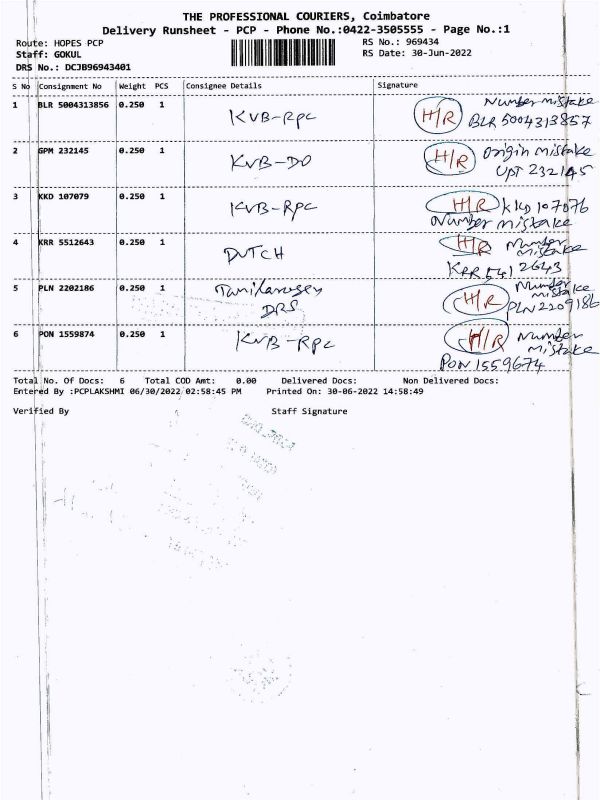 THE PROFESSIONAL COURIERS, Coimbatore
Delivery Runsheet - PCP - Phone No.:0422-3505555 - Page No.:1
Route: HOPES PCP RS No.: 969434
Staff: GOKUL RS Date: 30-Jun-2022
DRS No.: DCJB96943401
S No Consignment No Weight PCS Consignee Details Signature
1 BLR 5004313856 0.250 1 KVB-RPC H/R Number mistake
BLR 5004313857
2 GPM 232145 0.250 1 KVB-DO H/R Origin mistake
UPT 232145
3 KKD 107079 0.250 1 KVB-RPC H/R KKD 107076
Number mistake
4 KRR 5512643 0.250 1 DUTCH H/R Number
mistake
KRR 5412643
5 PLN 2202186 0.250 1 H/R Number
mistake
DRS PLN 2209186
6 PON 1559874 0.250 1 KVB-RPC H/R Number
mistake
PON 1559674
Total No. Of Docs: 6 Total COD Amt: 0.00 Delivered Docs: Non Delivered Docs:
Entered By :PCPLAKSHMI 06/30/2022 02:58:45 PM Printed On: 30-06-2022 14:58:49
Verified By Staff Signature